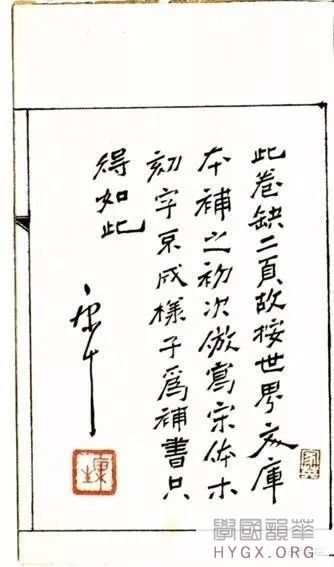 此卷缺二頁故按世界文庫
本補之初次倣寫宋体木
刻字不成樣子爲補書只
得如此
康生
康生
家英
學國韻華
HYGX.ORG